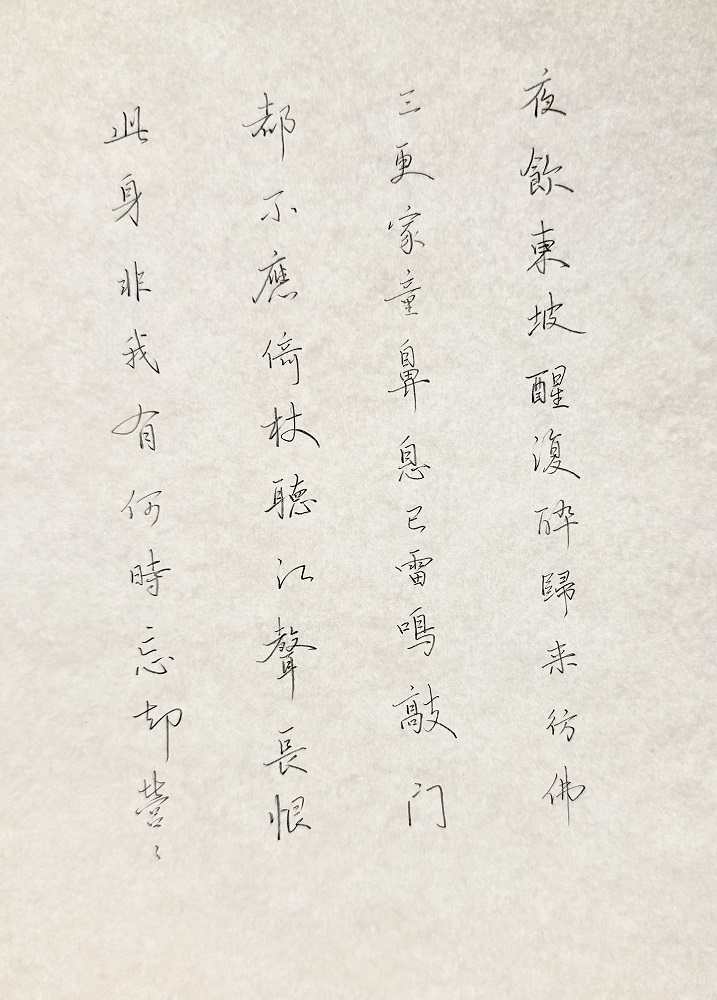 夜飲東坡醒復醉歸来彷佛
三更家童鼻息已雷鳴敲门
都不應倚杖聽江聲長恨
此身非我有何時忘却營〻